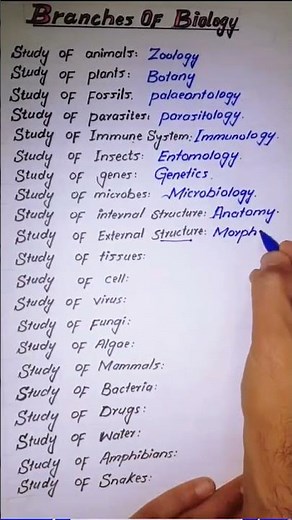 Branches Of Biology
Study of animals: Zoology
Study of plants: Botany
Study of Fossils. palaeontology
Study of parasites: parasitology.
Study of Immune System: Immunology.
Study of Insects: Entomology.
Study of genes: Genetics.
Study of microbes: Microbiology.
Study of internal Structure: Anatomy.
Study of External Structure: Morph
Study of tissues:
Study of cell:
Study of virus:
Study of Fungi:
Study of Algae:
Study of Mammals:
Study of Bacteria:
Study of Drugs:
Study of Water:
Study of Amphibians:
Study of Snakes: